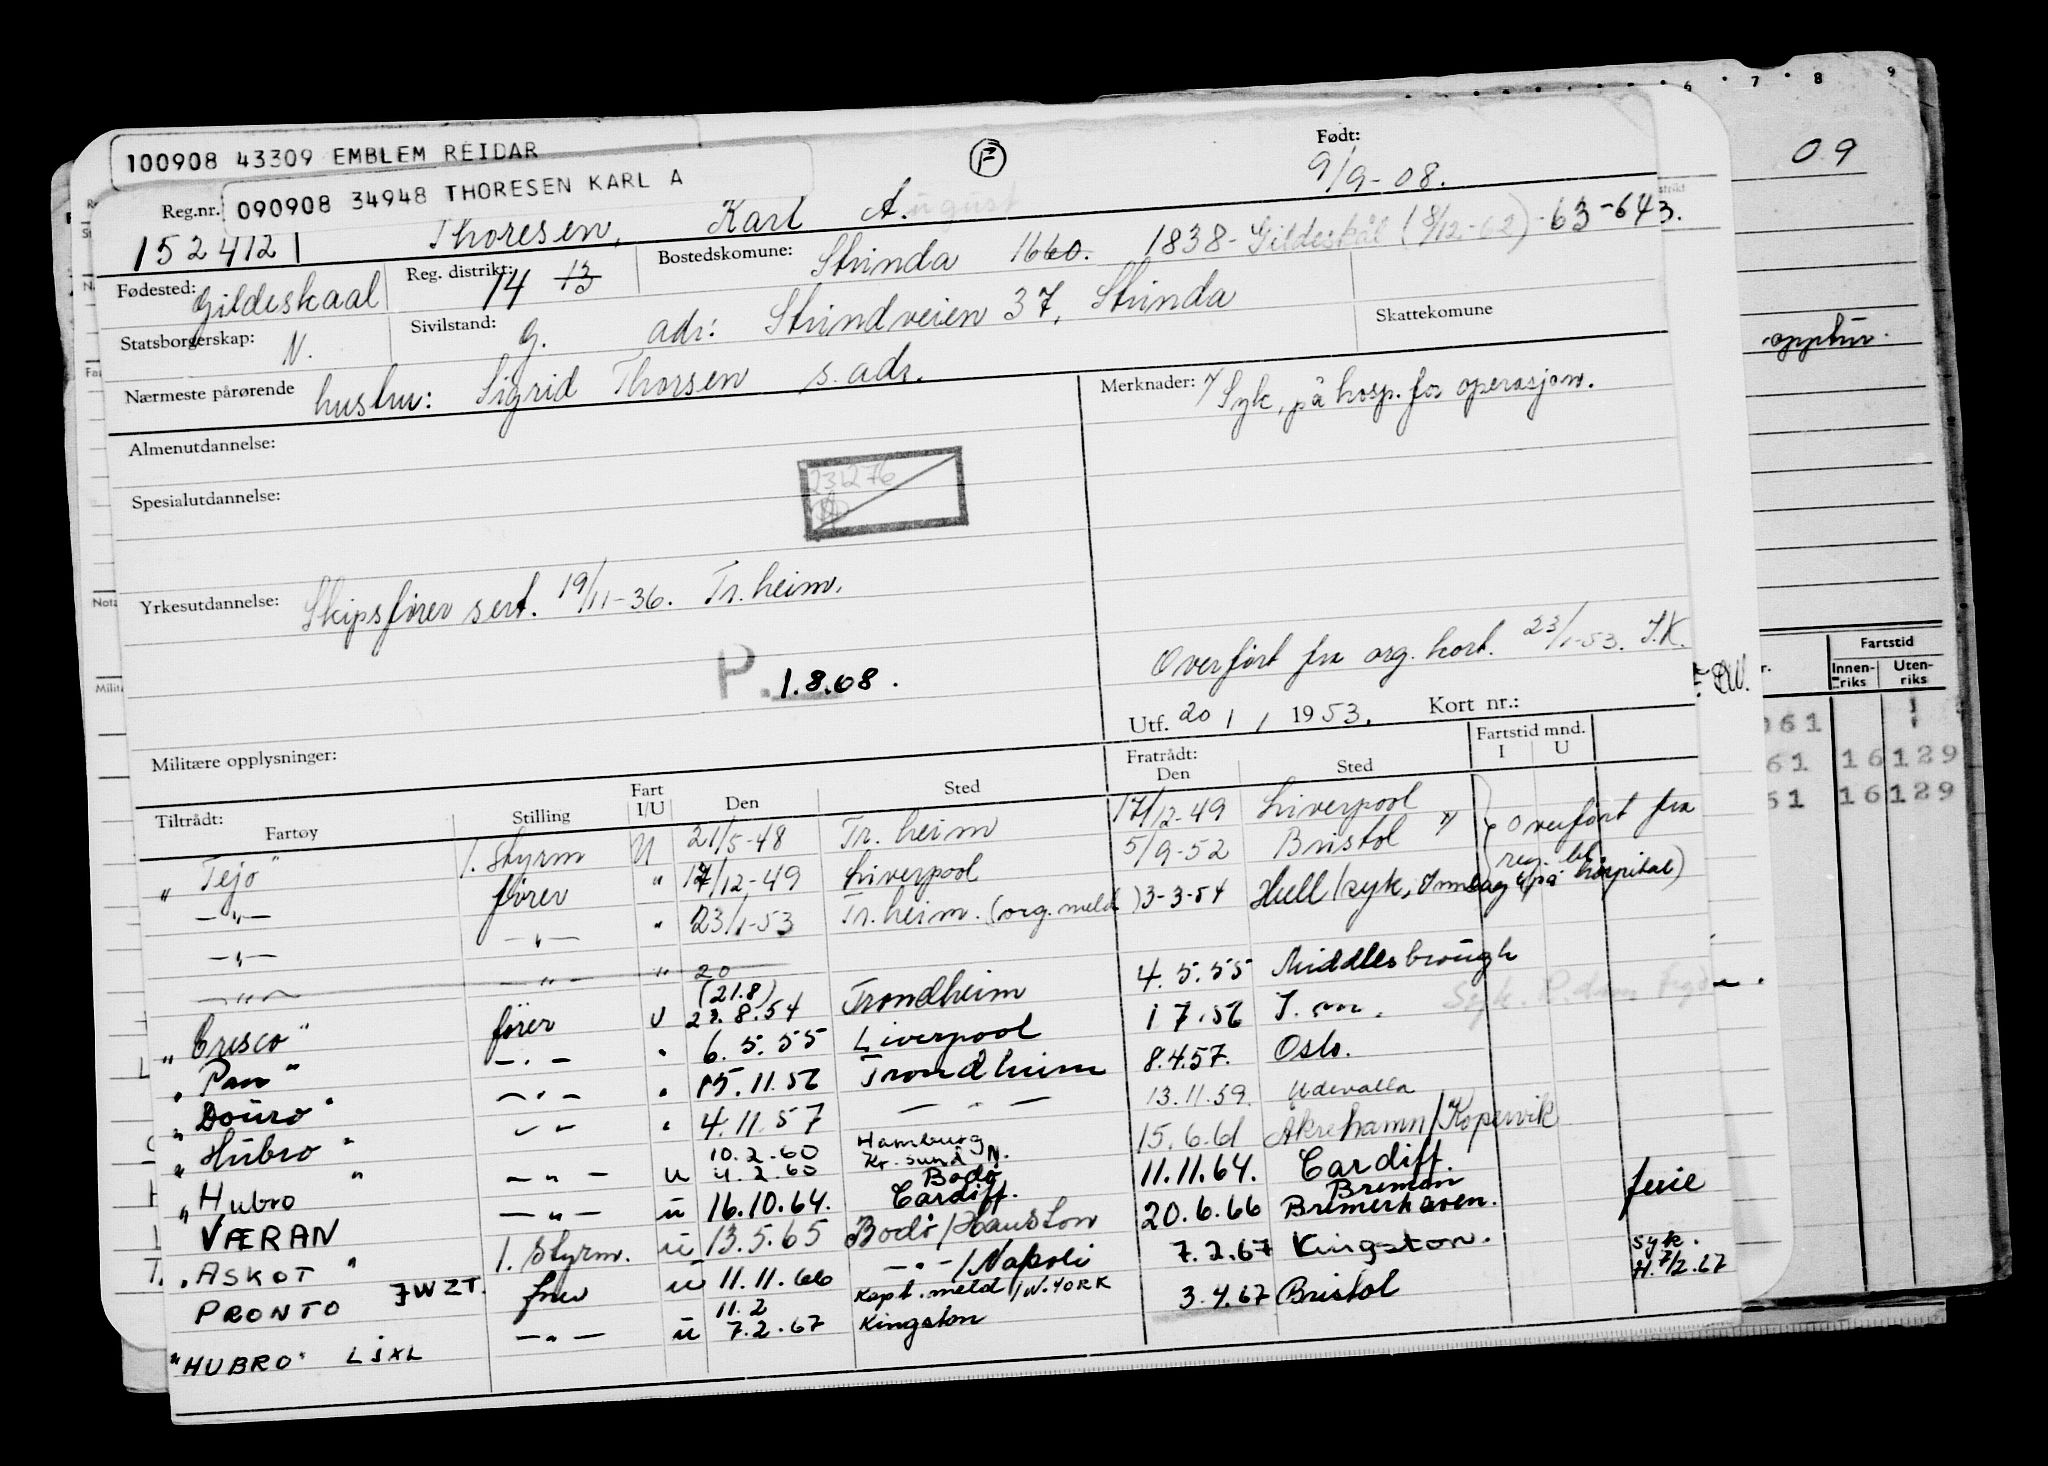 6 7 8 9
09
100908 43309 EMBLEM REIDAR
090908 34948 THORESEN KARL A
F
Født:
9/9-08.
Reg.nr.
1524121
Thoresen, Karl August
Fødested: Gildeskaal
Reg. distrikt: 14 13
Bostedskomune: Strinda 1660. 1838- Gildeskål (8/12-62) -63-643.
Statsborgerskap: N.
Sivilstand: g. adr: Strindveien 37, Strinda
Skattekomune
Nærmeste pårørende hustru: Sigrid Thorsen s. adr.
Merknader: Syk, på hosp. for operasjon.
opptur.
Almenutdannelse:
231276
Spesialutdannelse:
Yrkesutdannelse: Skipsfører sert. 19/11-36. Tr.heim.
Overført fra org. kort. 23/1-53. S.K.
P. 1.8.68.
Utf. 20/1, 1953. Kort nr.:
Militære opplysninger:
Fartstid
Innen-riks Uten-riks
061
61 16 129
61 16 129
Tiltrådt: Fartøy Stilling Fart I/U Den Sted Fratrådt: Den Sted Fartstid mnd. I U
"Tejo" 1. styrm U 21/5-48 Tr. heim 17/12-49 Liverpool Overført fra
—"— fører " 17/12-49 Liverpool 5/9-52 Bristol reg. bl.
—"— —"— " 23/1-53 Tr. heim. (org. meld) 3-3-54 Hull (syk, innlagt på hospital)
—"— —"— " 20
(21.8)
"Cresco" fører U 23.8.54 Trondheim 4.5.55 Middlesbrough
"Pan" —"— " 6.5.55 Liverpool 1 7.56 S. m.
"Douro" —"— " 15.11.56 Trondheim 8.4.57. Oslo.
"Hubro" —"— " 4.11.57 —"— 13.11.59. Udevalla
10.2.60 Hamburg
"Hubro" —"— u 4.2.60 Kr. sund N. 15.6.61 Åkrehamn/Kopervik
VÆRAN —"— u 16.10.64. Bodø Cardiff. 11.11.64. Cardiff.
"ASKOT" 1. styrm. u 13.5.65 Bodø/Hauston 20.6.66 Bremen Bremerhaven. ferie
PRONTO JWZT. fører u 11.11.66 —"—/Napoli 7.2.67 Kingston. syk.
H. 7/2.67
11.2 Kapt. meld /N. YORK
"HUBRO" LJXL —"— u 7.2.67 Kingston 3.4.67 Bristol